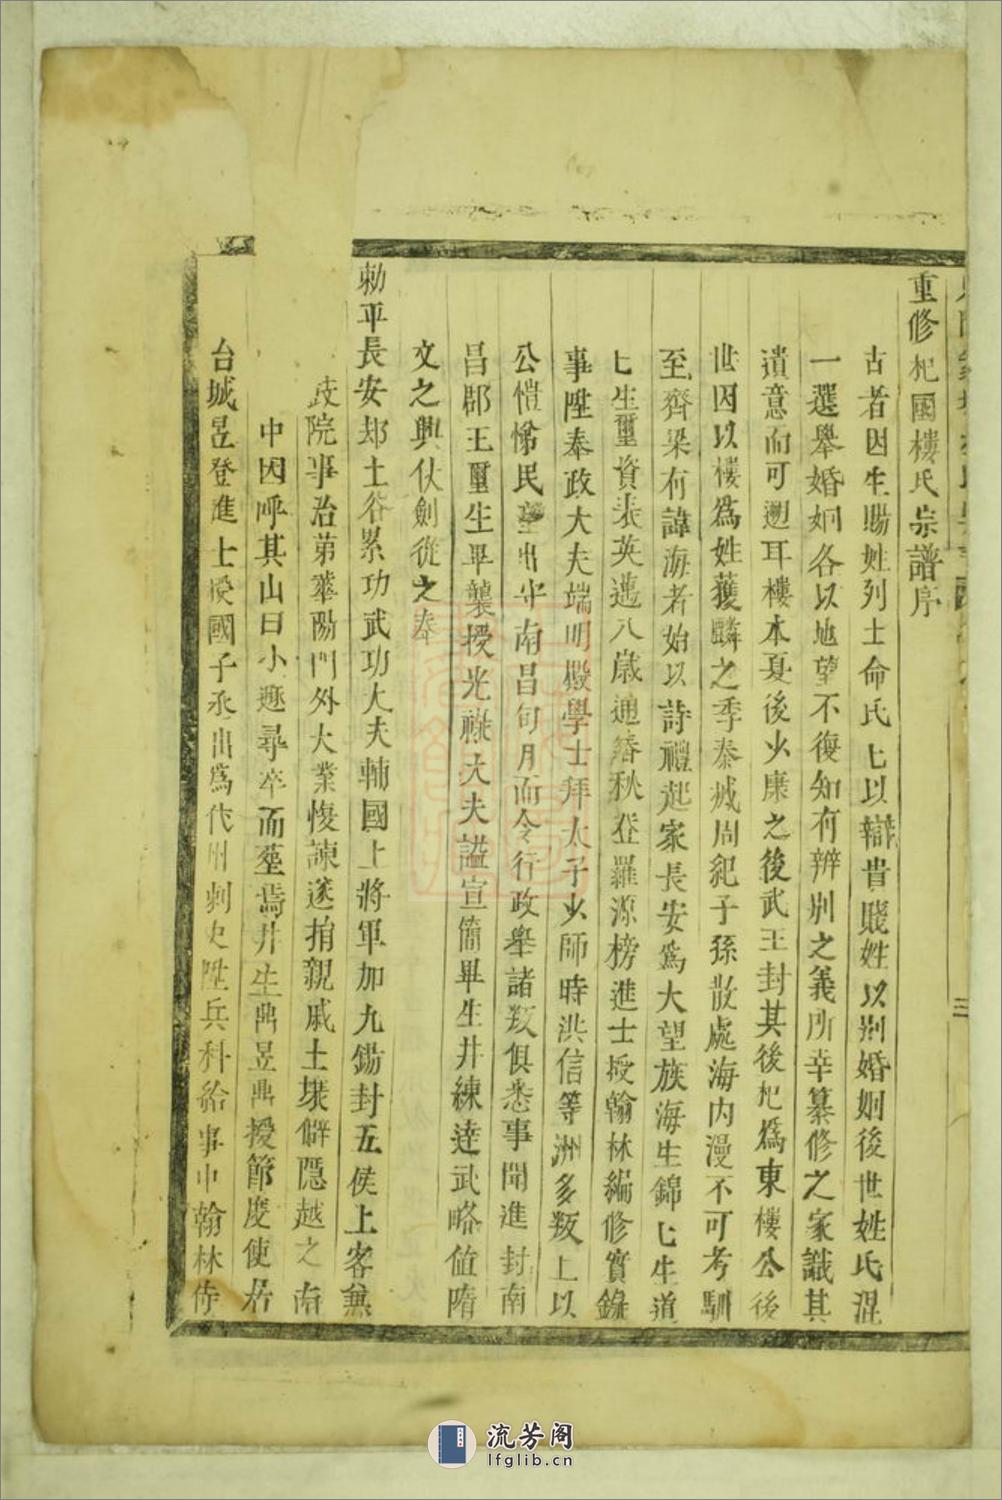 重修杞國樓氏宗譜序
古者因生賜姓列土命氏七以辯昔賤姓以別婚姻後世姓氏混
一選舉婚姻各以地望不復知有辨別之義所幸纂修之家識其
遺意而可遡耳樓本夏後少康之後武王封其後杞爲東樓公後
世因以樓爲姓獲麟之季秦滅周祀子孫散處海內漫不可考馴
至齊梁有諱海者始以詩禮起家長安爲大望族海生錦七生道
七生璽資表英邁八歲通春秋登羅源榜進士授翰林編修實錄
事陞奉政大夫端明殿學士拜太子少師時洪信等洲多叛上以
公愷悌民望出守南昌旬月而令行政舉諸叛俱悉事聞進封南
昌郡王璽生畢襲授光祿大夫謚宣簡畢生井練達武略值隋
文之興仗劍從之奉
勅平長安郏土谷累功武功大夫輔國上將軍加九錫封五侯上客無
歧院事治第華陽門外大業悛諫遂捐親戚土壤僻隱越之南
中因呼其山曰小遯尋卒而塟焉井生鼎昱鼎授節度使居
台城昱登進士授國子丞出爲代州刺史陞兵科給事中翰林侍
三
流芳阁
lfglib.cn